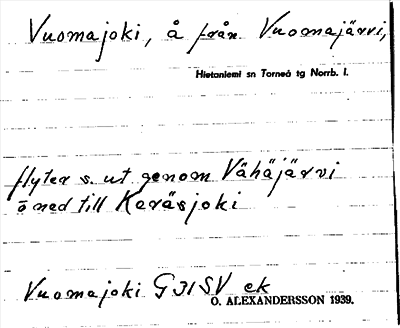 Vuomajoki, å från Vuomajärvi,
Hietaniemi sn Torneå tg Norrb. l.
flyter s. ut genom Vähäjärvi
ö ned till Keräsjoki
Vuomajoki G 31 SV ek
O. ALEXANDERSSON 1939.